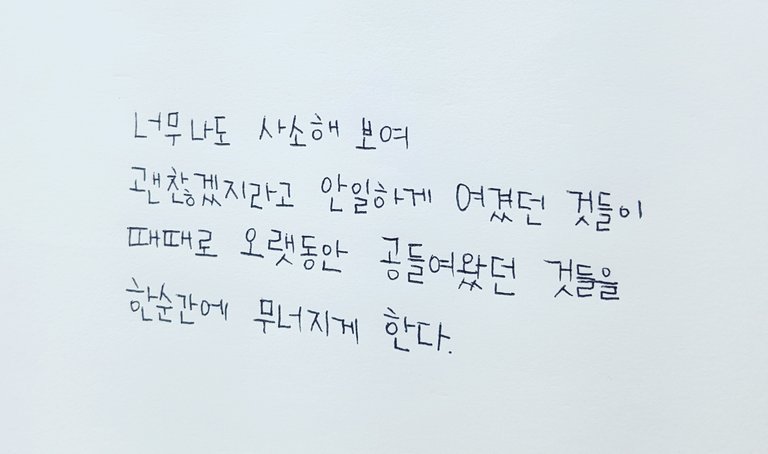 너무나도 사소해 보여
괜찮겠지라고 안일하게 여겼던 것들이
때때로 오랫동안 공들여왔던 것들을
한순간에 무너지게 한다.